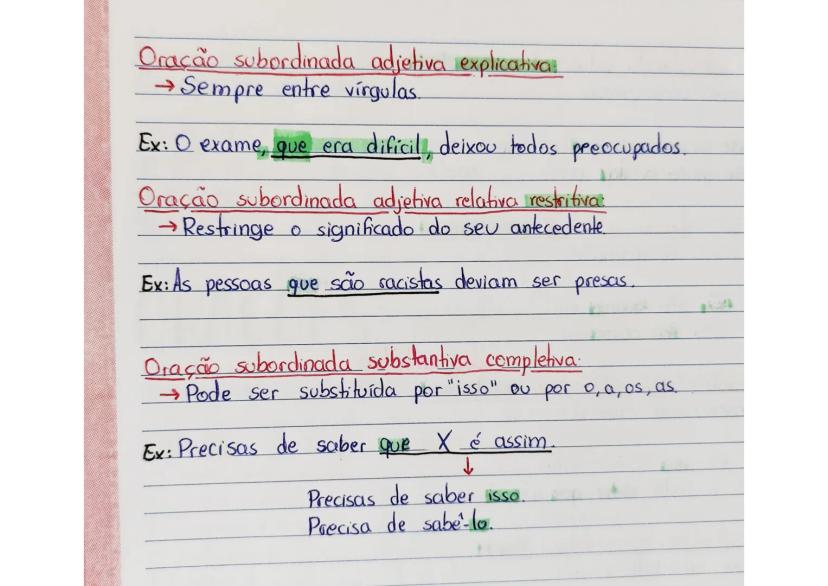 Oração subordinada adjetiva explicativa:
→ Sempre entre vírgulas.
Ex: O exame, que era difícil, deixou todos preocupados.
Oração subordinada adjetiva relativa restritiva:
→ Restringe o significado do seu antecedente.
Ex: As pessoas que são racistas deviam ser presas.
Oração subordinada substantiva completiva:
→ Pode ser substituída por "isso" ou por o, a, os, as.
Ex: Precisas de saber que X é assim.
↓
Precisas de saber isso.
Precisa de sabê-lo.